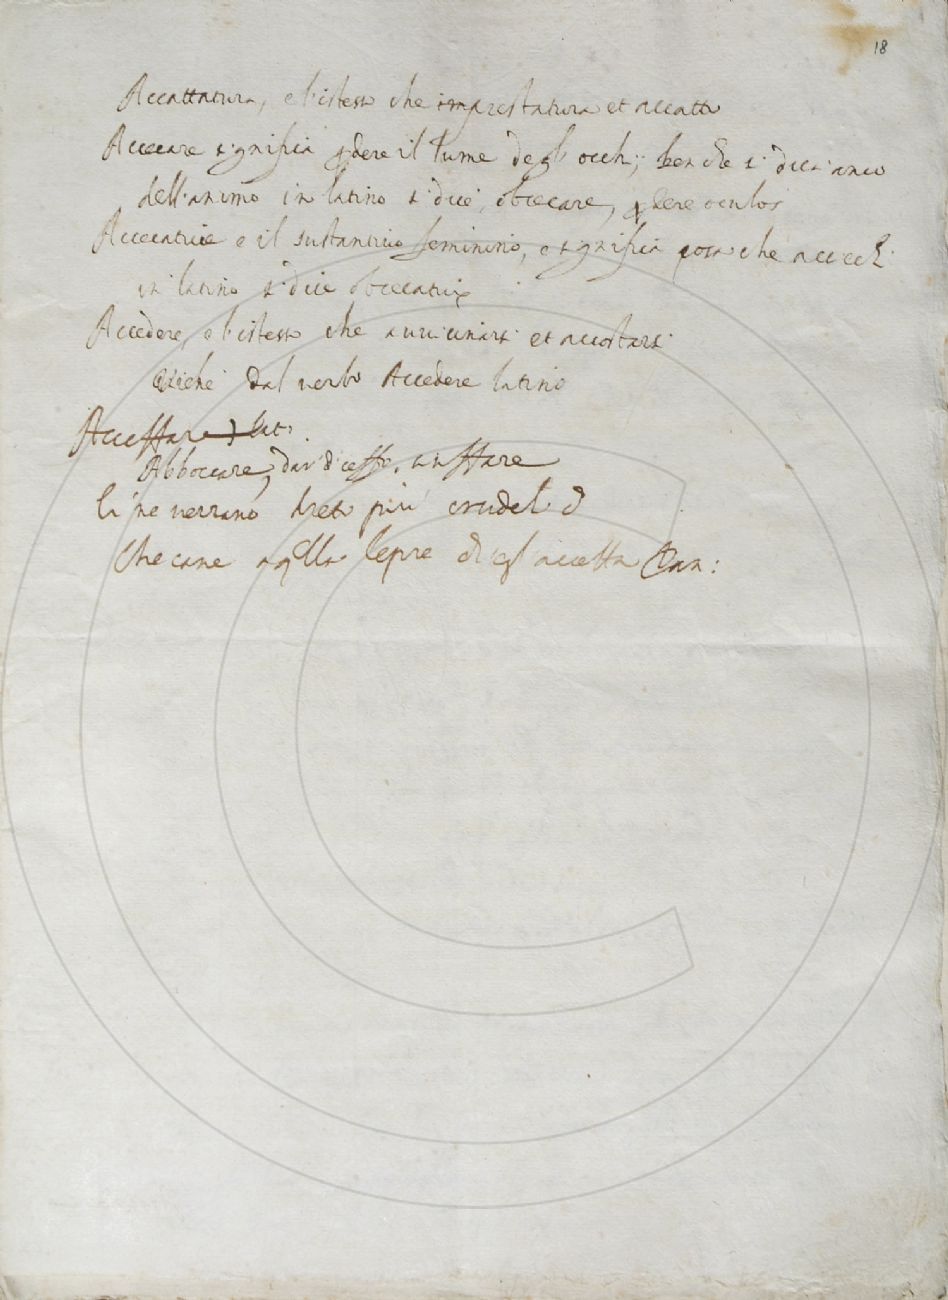 18
Accattatura, e l'istesso che imprestatura et accatto
Accecare significa perdere il lume degl' occhi; ben che si dica anco
dell'animo in latino si dice, obcecare, perdere oculos
Accecatrice e il sustantivo feminino, e significa cosa che accechi
in latino si dice obcecatrix
Accedere, e l'istesso che avvicinarsi et accostarsi
dal verbo Accedere latino
Acceffare
Abboccare, dar di ceffo,
li ne verrano dreto più crudeli
che cane a quella lepre ch'egl' acceffa Dan: